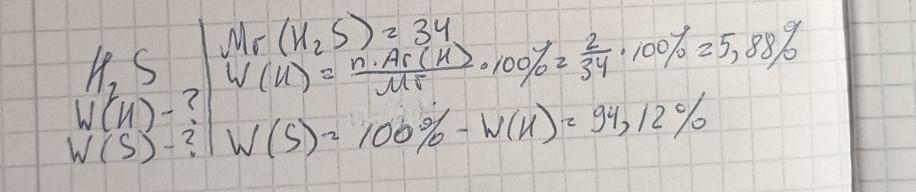 H₂S
W(H) - ?
W(S) - ?
Mr(H₂S) = 34
W(H) = n·Ar(H)/Mr · 100% = 2/34 · 100% = 5,88%
W(S) = 100% - W(H) = 94,12%